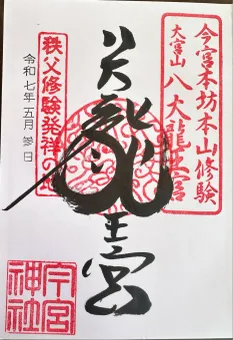 今宮本坊本山修験
大宮山 八大龍王宮
八大龍王宮
秩父修験発祥の地
令和七年五月参日
今宮
神社